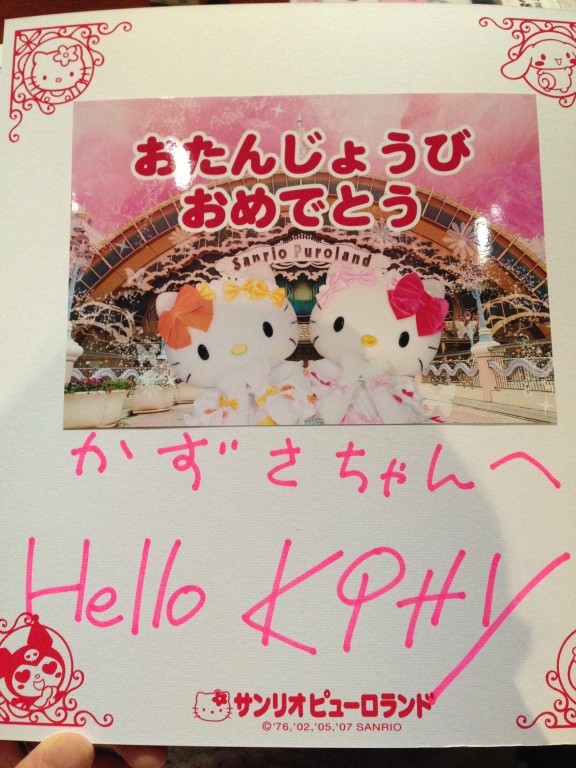 おたんじょうび
おめでとう
Sanrio Puroland
かずさちゃんへ
Hello Kitty
サンリオピューロランド
©'76,'02,'05,'07 SANRIO